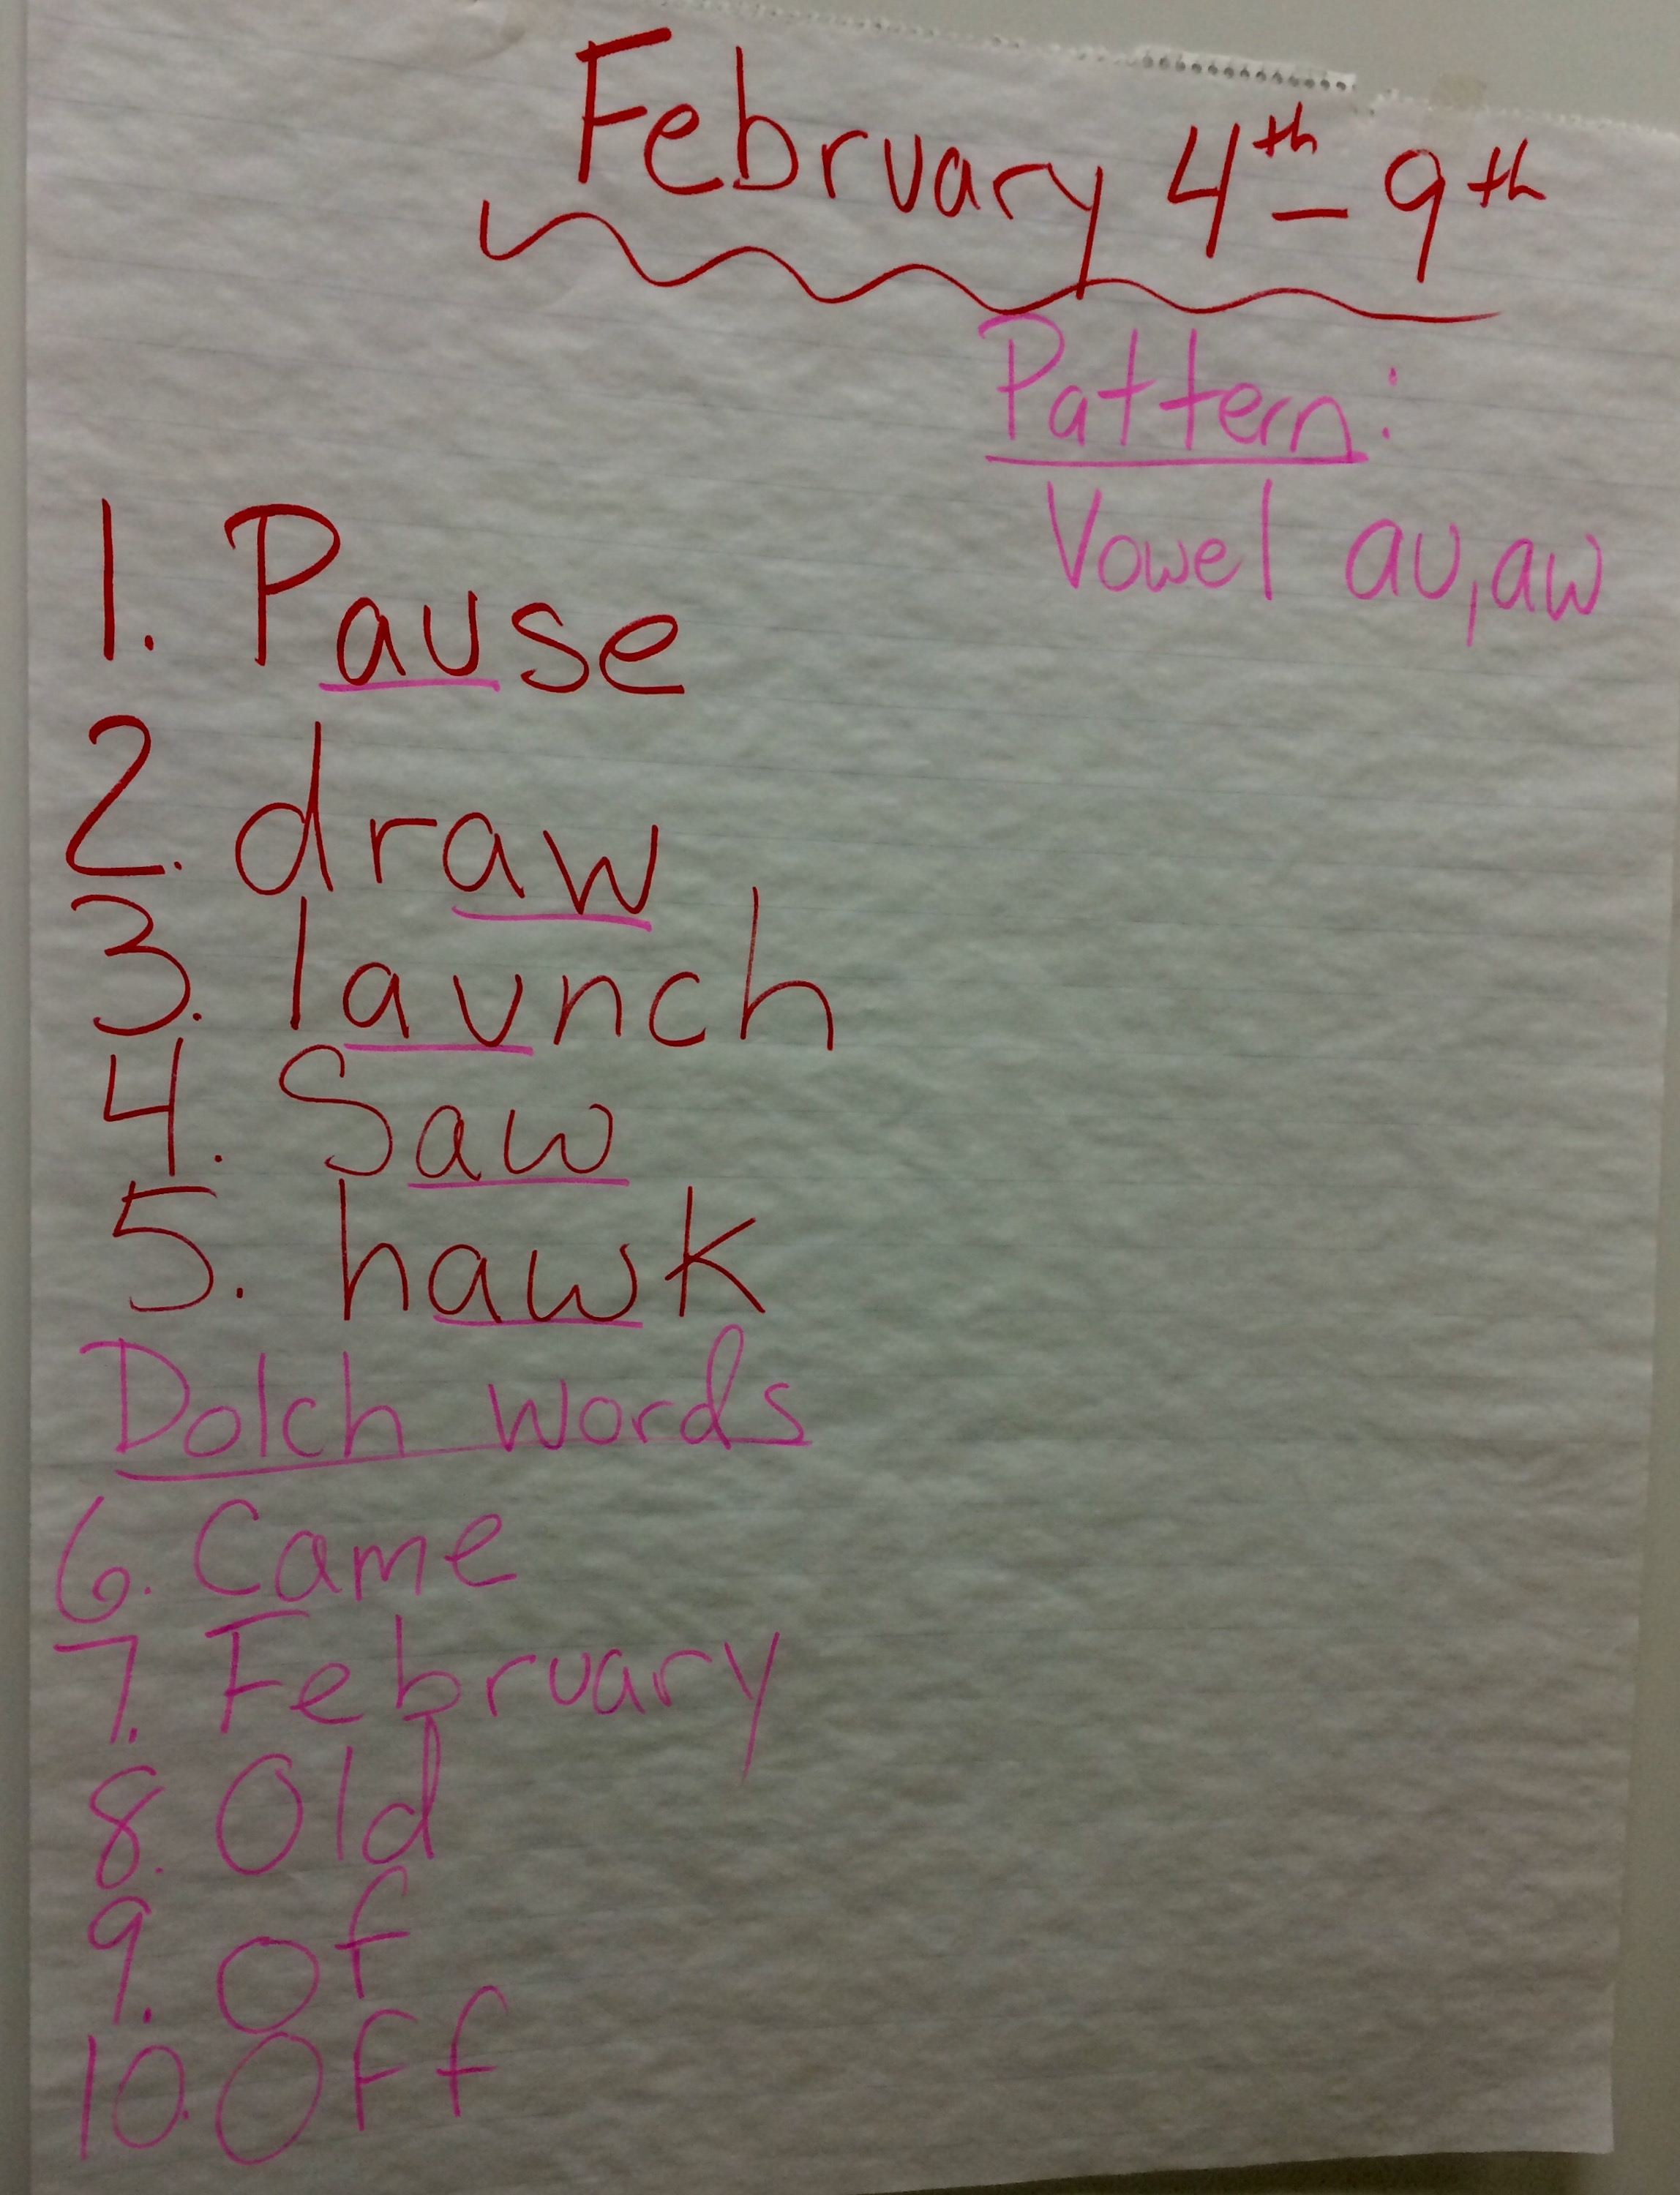 February 4th - 9th
Pattern:
Vowel au, aw
1. Pause
2. draw
3. launch
4. Saw
5. hawk
Dolch words
6. Came
7. February
8. Old
9. Of
10. Off